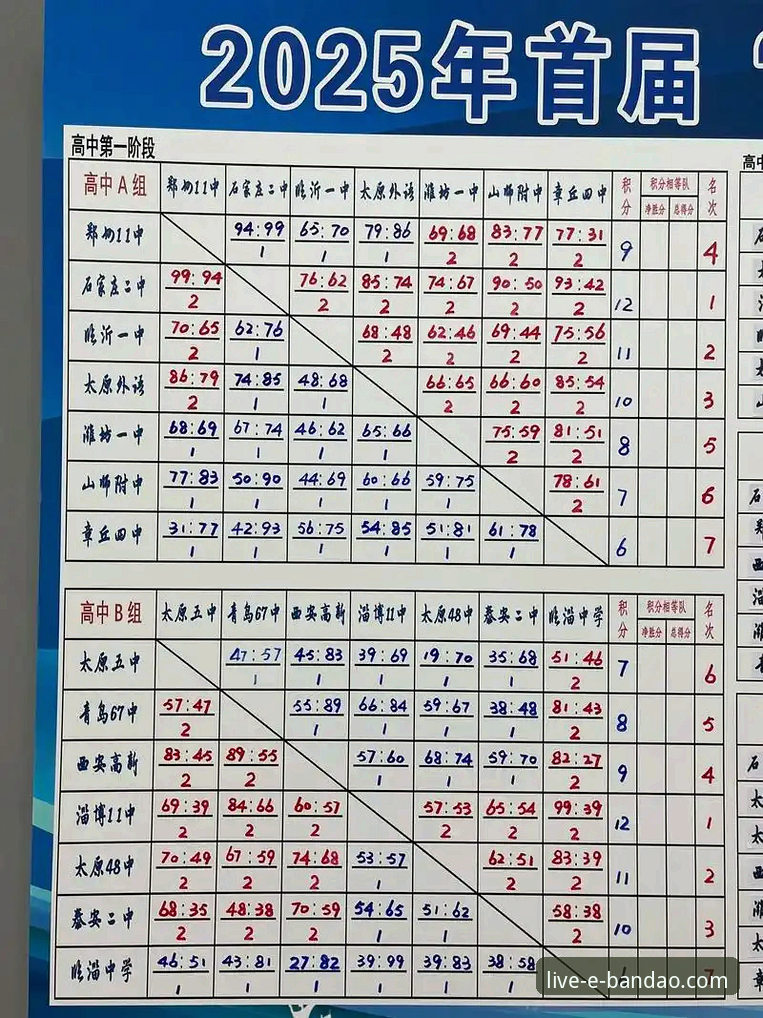 2025年首届
高中第一阶段
高中A组 郑州11中 石家庄二中 临沂一中 太原外语 潍坊一中 山师附中 章丘四中 积分 积分相等队 净胜分 总得分 名次
郑州11中 94:99 1 65:70 1 79:86 1 69:68 2 83:77 2 77:31 2 9 4
石家庄二中 99:94 2 76:62 2 85:74 2 74:67 2 90:50 2 93:42 2 12 1
临沂一中 70:65 2 62:76 1 68:48 2 62:46 2 69:44 2 75:56 2 11 2
太原外语 86:79 2 74:85 1 48:68 1 66:65 2 66:60 2 85:54 2 10 3
潍坊一中 68:69 1 67:74 1 46:62 1 65:66 1 75:59 2 81:51 2 8 5
山师附中 77:83 1 50:90 1 44:69 1 60:66 1 59:75 1 78:61 2 7 6
章丘四中 31:77 1 42:93 1 56:75 1 54:85 1 51:81 1 61:78 1 6 7
高中B组 太原五中 青岛67中 西安高新 淄博11中 太原48中 泰安二中 临淄中学 积分 积分相等队 净胜分 总得分 名次
太原五中 47:57 1 45:83 1 39:69 1 19:70 1 35:68 1 51:46 2 7 6
青岛67中 57:47 2 55:89 1 66:84 1 59:67 1 38:48 1 81:43 2 8 5
西安高新 83:45 2 89:55 2 57:60 1 68:74 1 59:70 1 82:27 2 9 4
淄博11中 69:39 2 84:66 2 60:57 2 57:53 2 65:54 2 99:39 2 12 1
太原48中 70:49 2 67:59 2 74:68 2 53:57 1 62:51 2 83:39 2 11 2
泰安二中 68:35 2 48:38 2 70:59 2 54:65 1 51:62 1 58:38 2 10 3
临淄中学 46:51 1 43:81 1 27:82 1 39:99 1 39:83 1 38:58 1
live-e-bandao.com